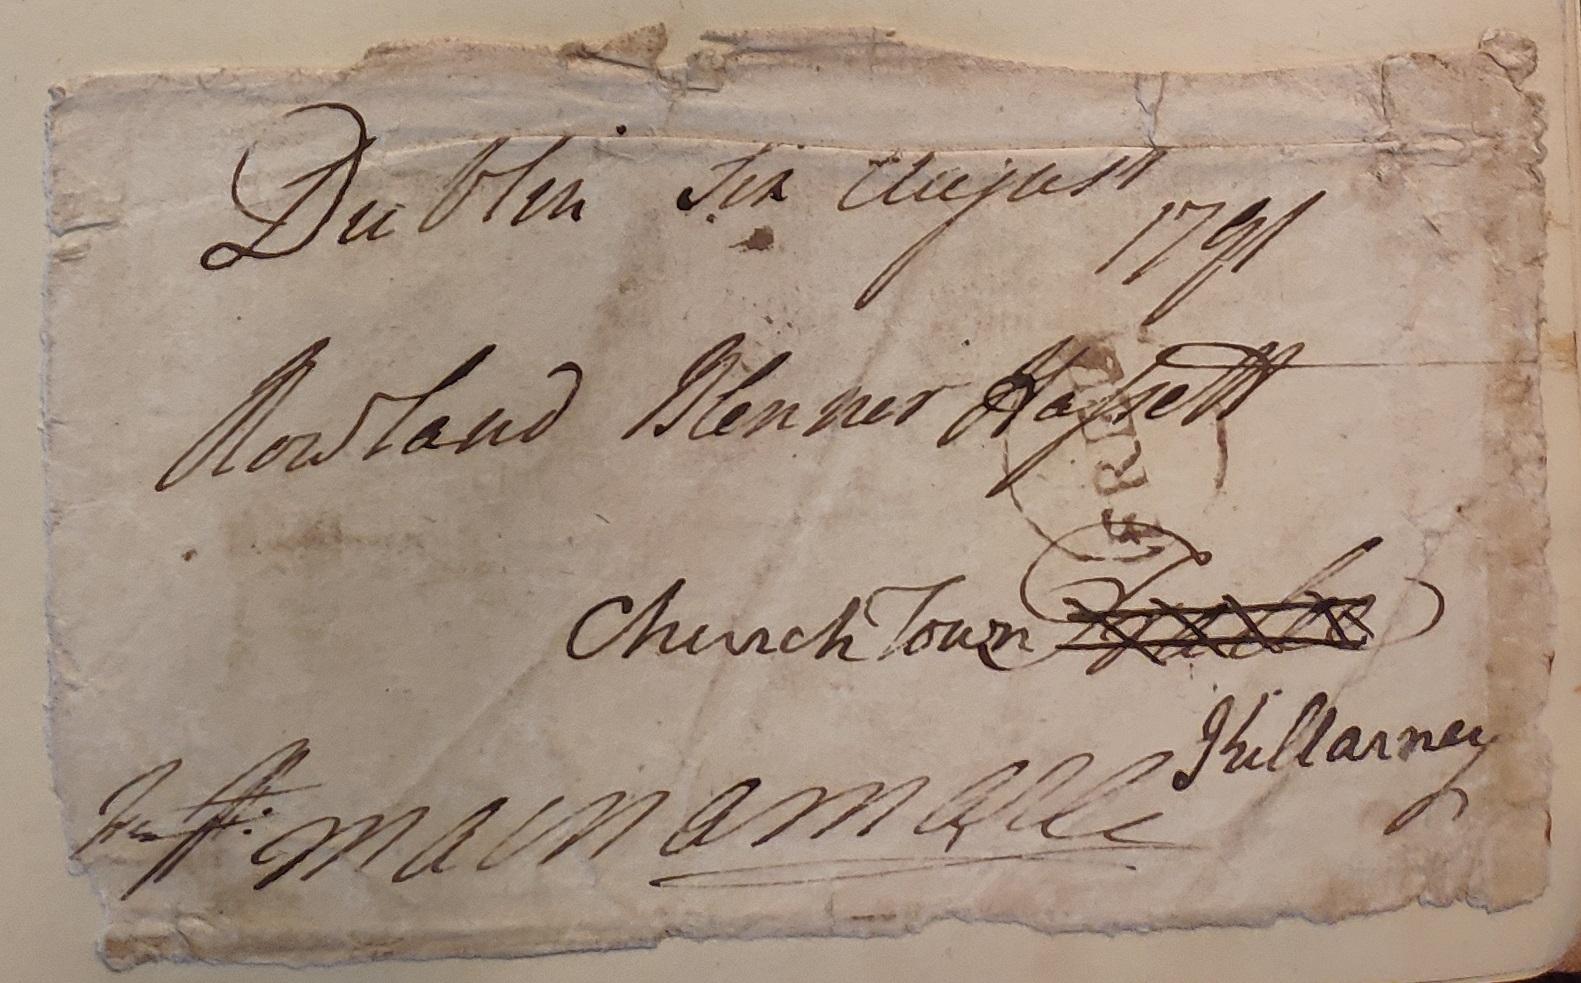 Dublin Six August
1791
Rowland Blenner Hassett
FREE
Church Town Tralee
Killarney
Macnamara